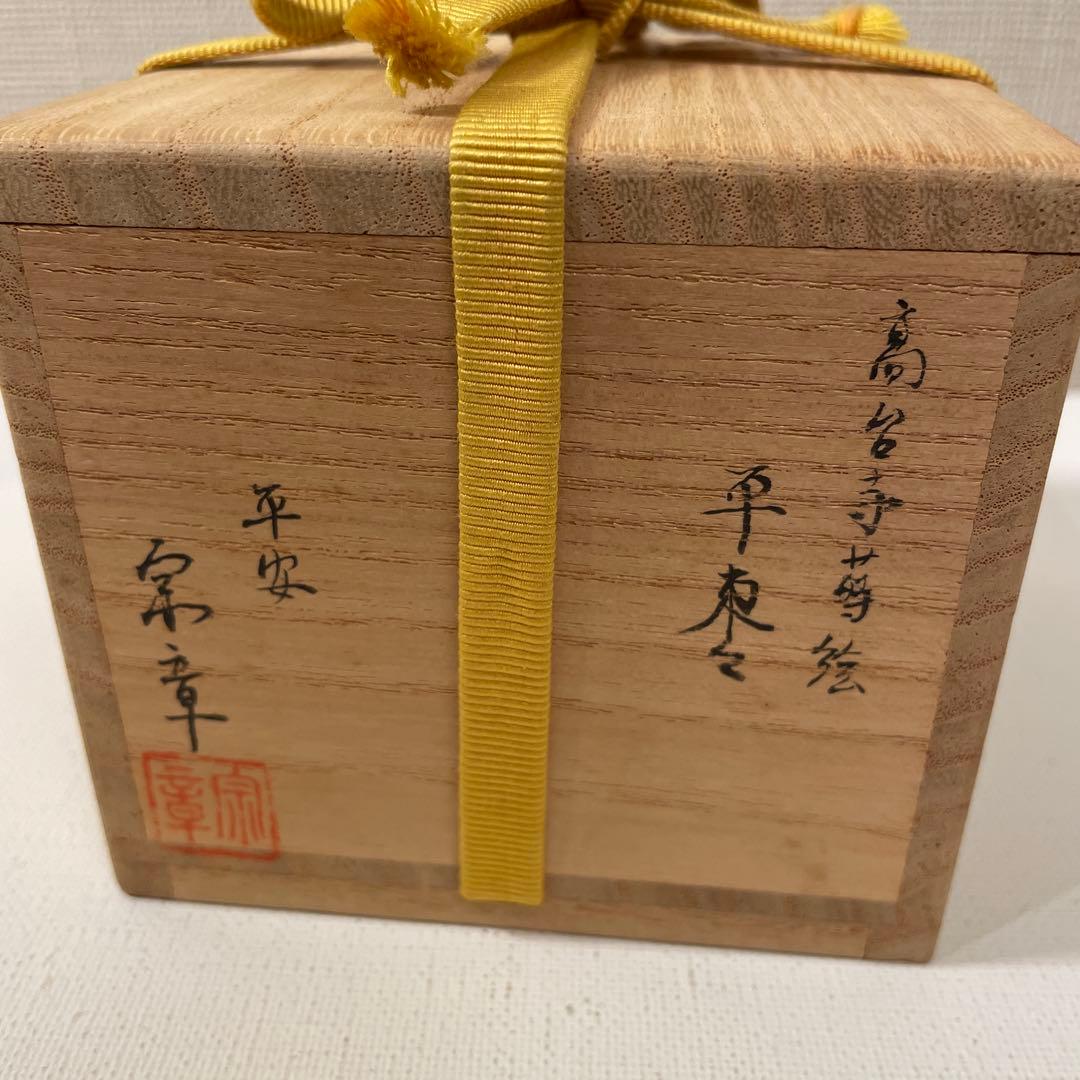 高台寺蒔絵
棗
平安
宗章
宗章